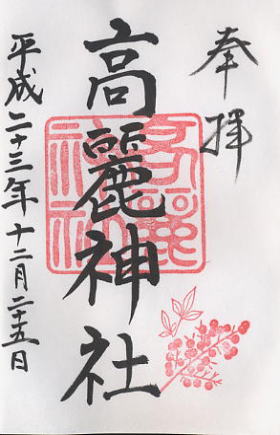 奉拝
高麗神社
平成二十三年十二月二十五日
高麗神社